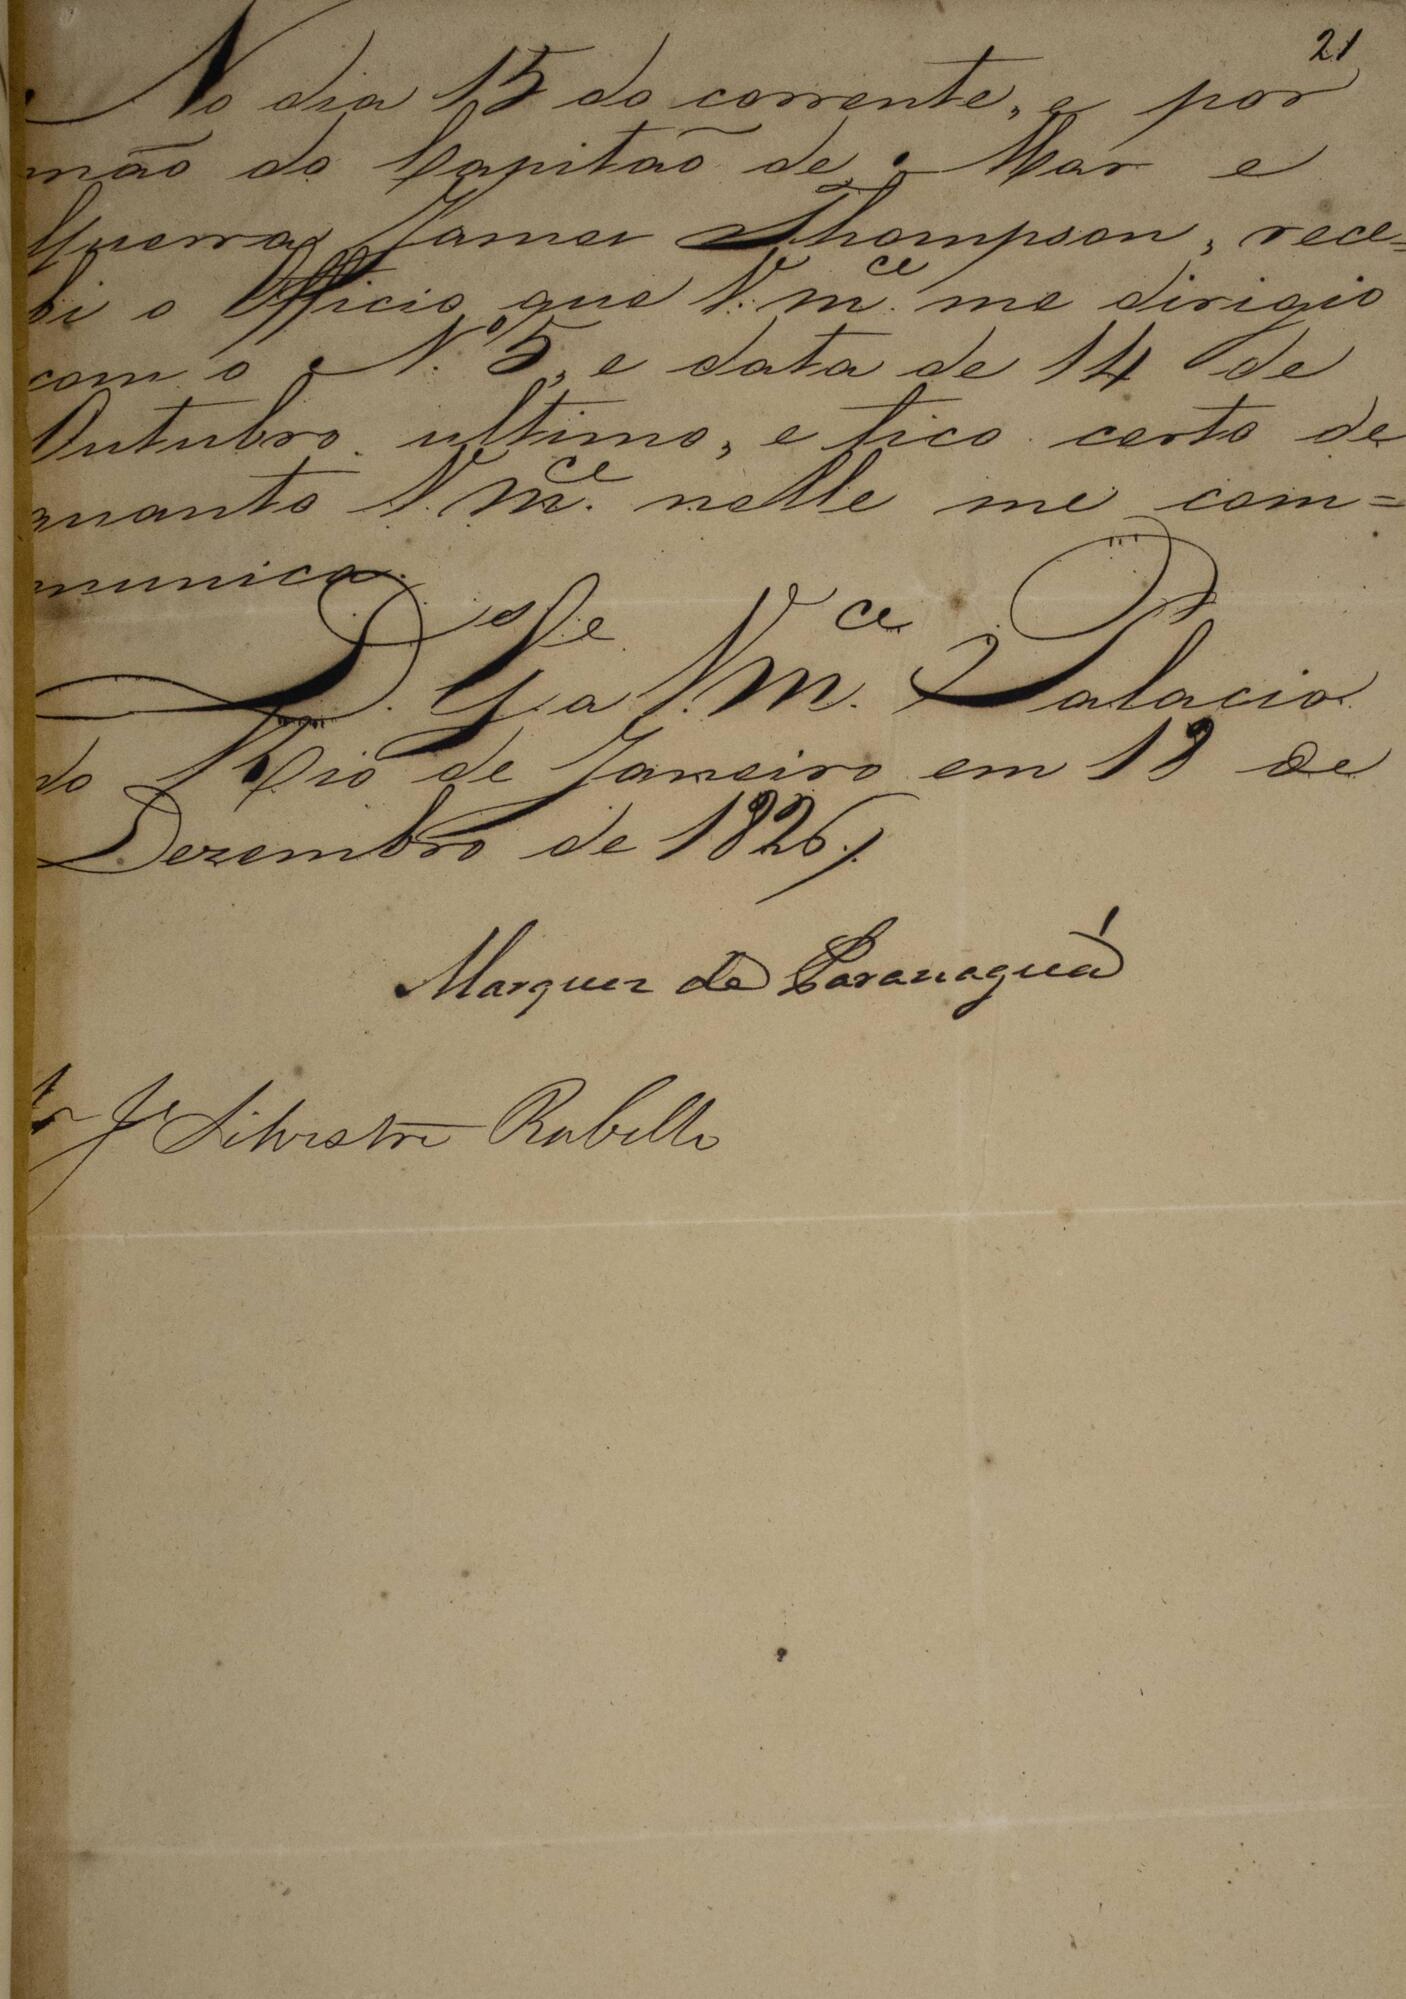 21
No dia 15 do corrente, e por
mão do Capitão de Mar e
Guerra James Thompson, rece=
bi o Officio que V. m.ce me dirigio
com o N.o 5, e data de 14 de
Outubro ultimo, e fico certo de
quanto V. m.ce nelle me com=
munica.
D.s G.e a V. m.ce Palacio
do Rio de Janeiro em 18 de
Dezembro de 1826.
Marquez de Paranaguá
J.e Silvestre Rebello